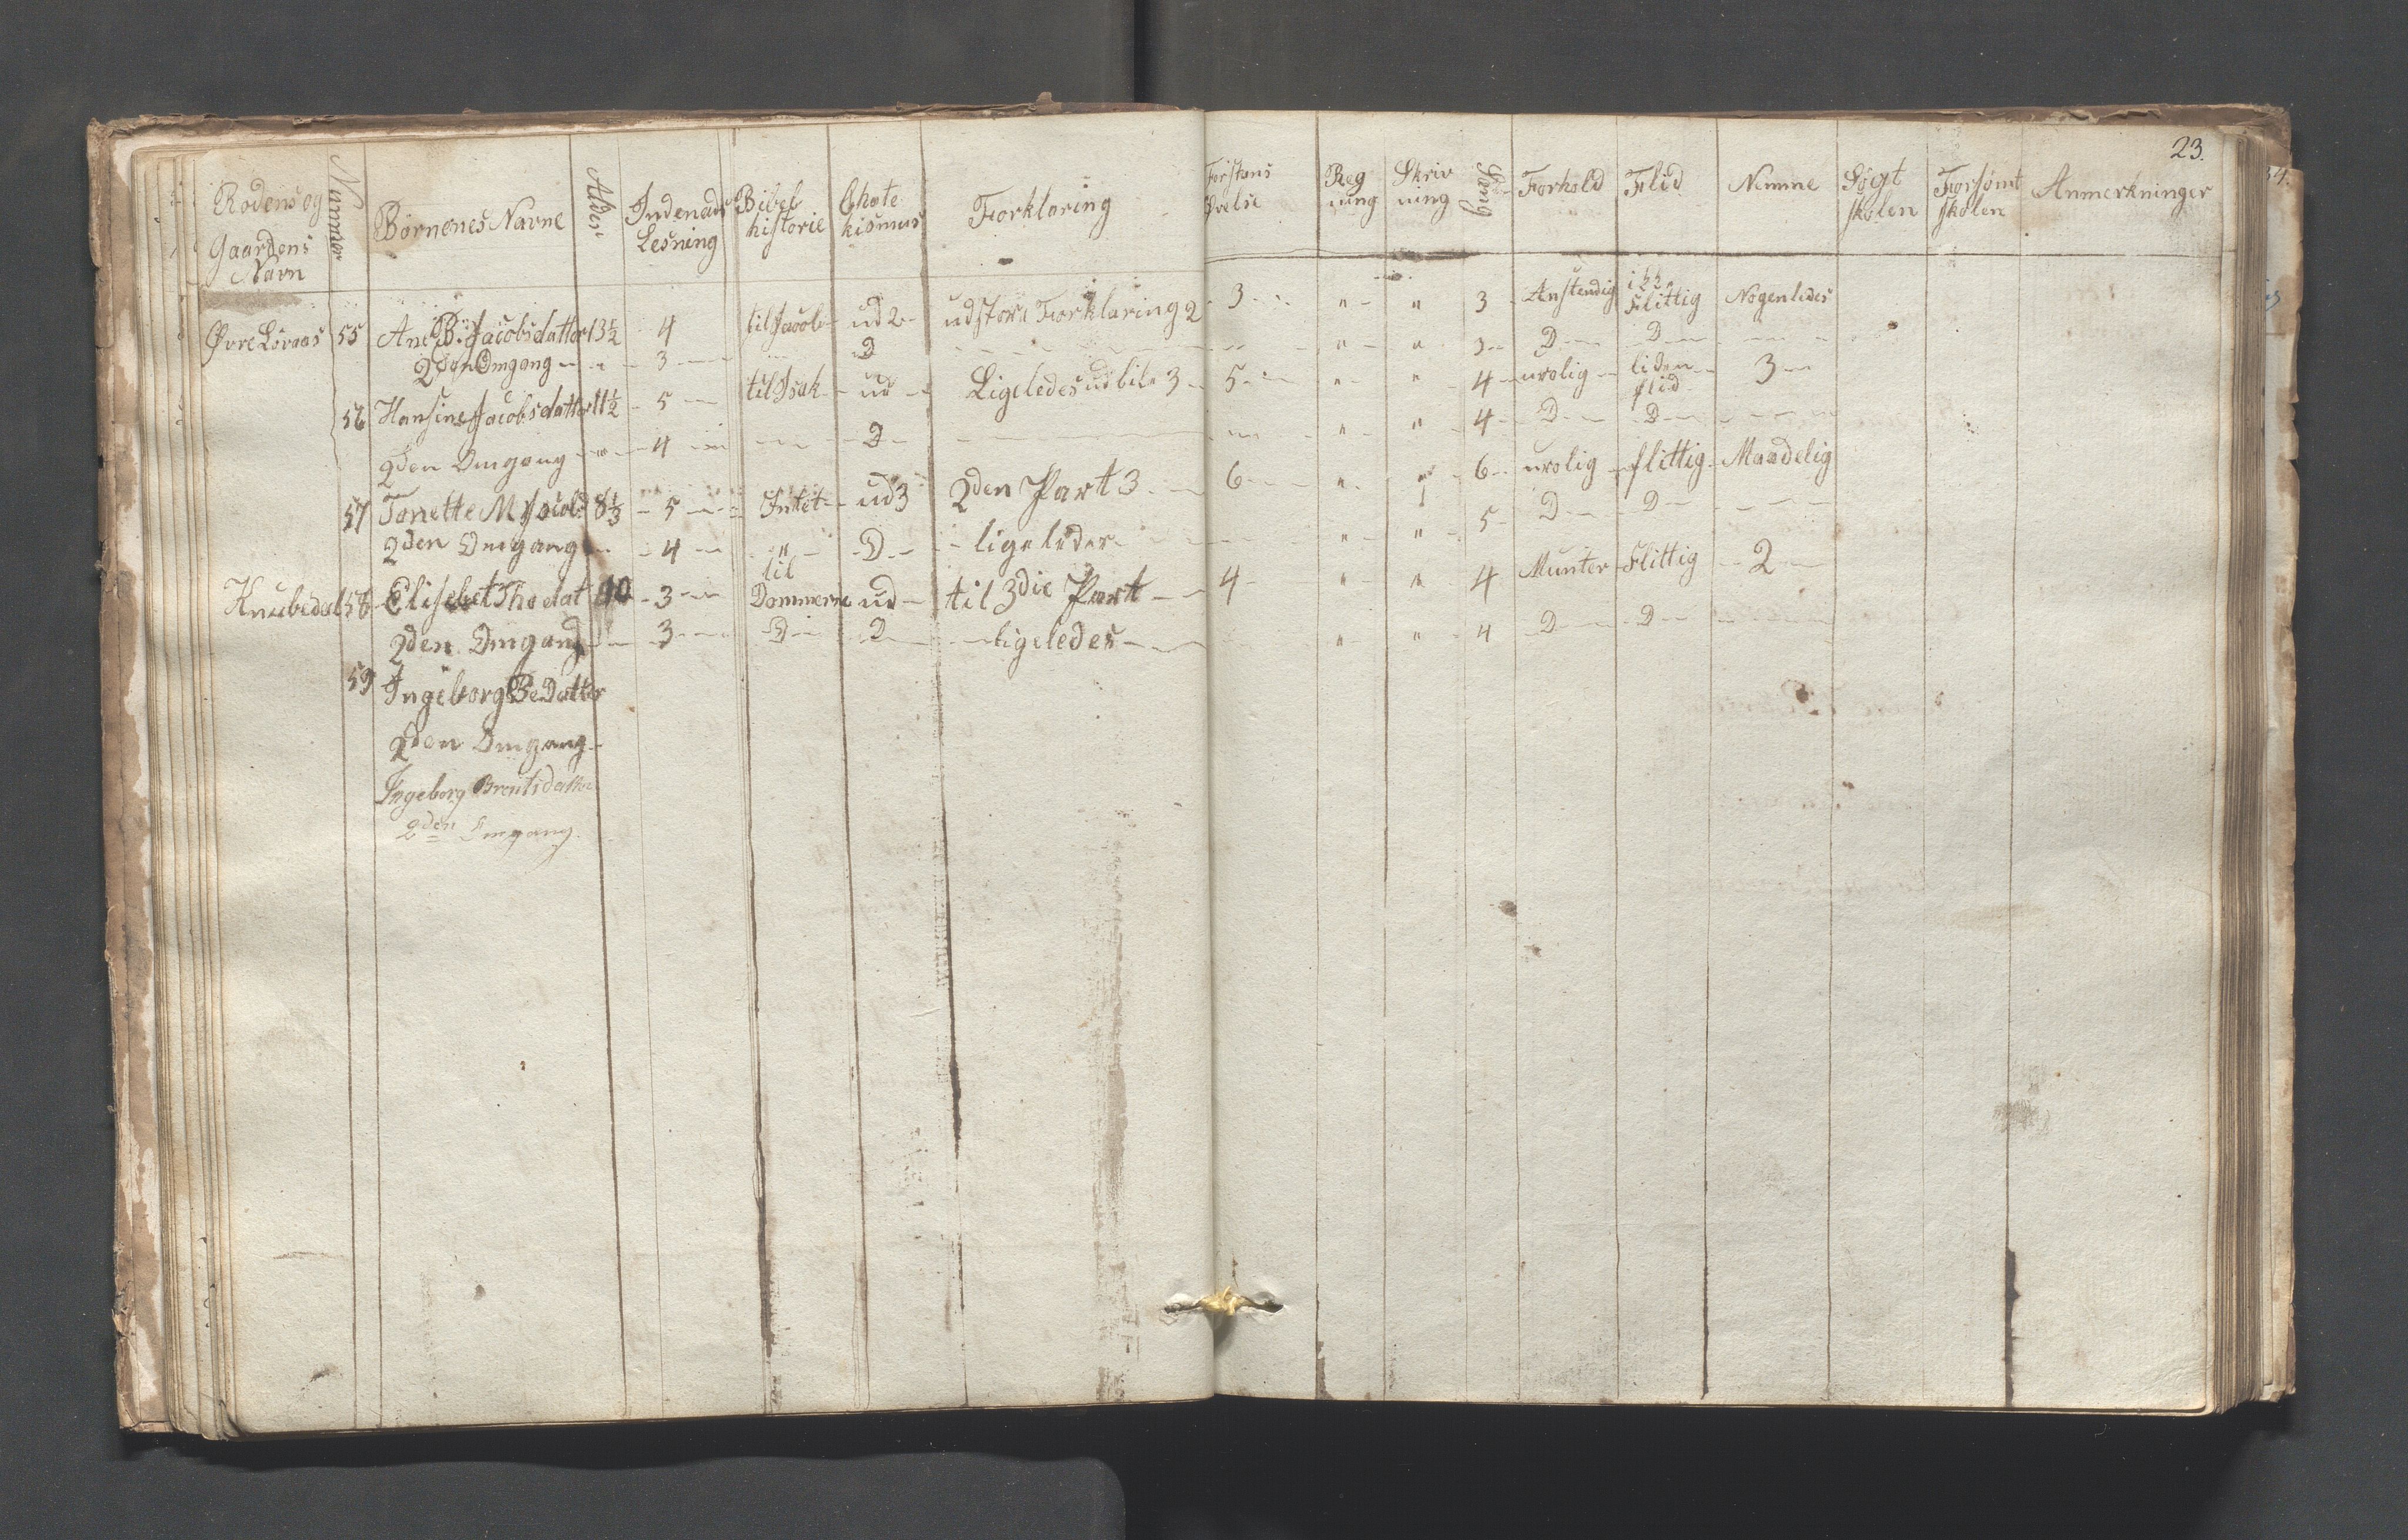 23.
Rodens og Gaardens Navn | Nummer | Børnenes Navne | Alder | Indenads Lesning | Bibel historie | Chate kismus | Forklaring | Forstans Øvelse | Reg ning | Skriv ning | Sang | Forhold | Flid | Nemme | Søgt skolen | Forsømt skolen | Anmerkninger
Øvre Löraas 55 Ane B: Jacobsdatter 13½ 4 til Jacob ud 2 ud store Forklaring 2 3 " " 3 Anstendig Flittig Nogenledes
2den Omgang " 3 D " " 3 D D
56 Hansine Jacobsdatter 11½ 5 til Isak ud Ligeledes ud lile 3 5 " " 4 urolig liden flid 3
2den Omgang " 4 D " " 4 D D
57 Tonette M Jacobs 8⅓ 5 Intet ud 3 2den Part 3 6 " " 6 urolig flittig Maadelig
2den Omgang 4 " D ligeledes " " 5 D D
Knubedal 58 Elisebet Tho dat 10 3 til Dommerne ud til 3die Part 4 " " 4 Munter Flittig 2
2den Omgang 3 D D ligeledes " " 4 D D
59 Ingeborg Be Datter
2den Omgang
Ingeborg Brentsdatter
2den Omgang.